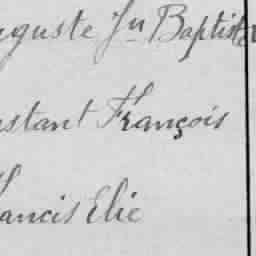 uguste Jn Baptiste
nstant François
rancis Elie